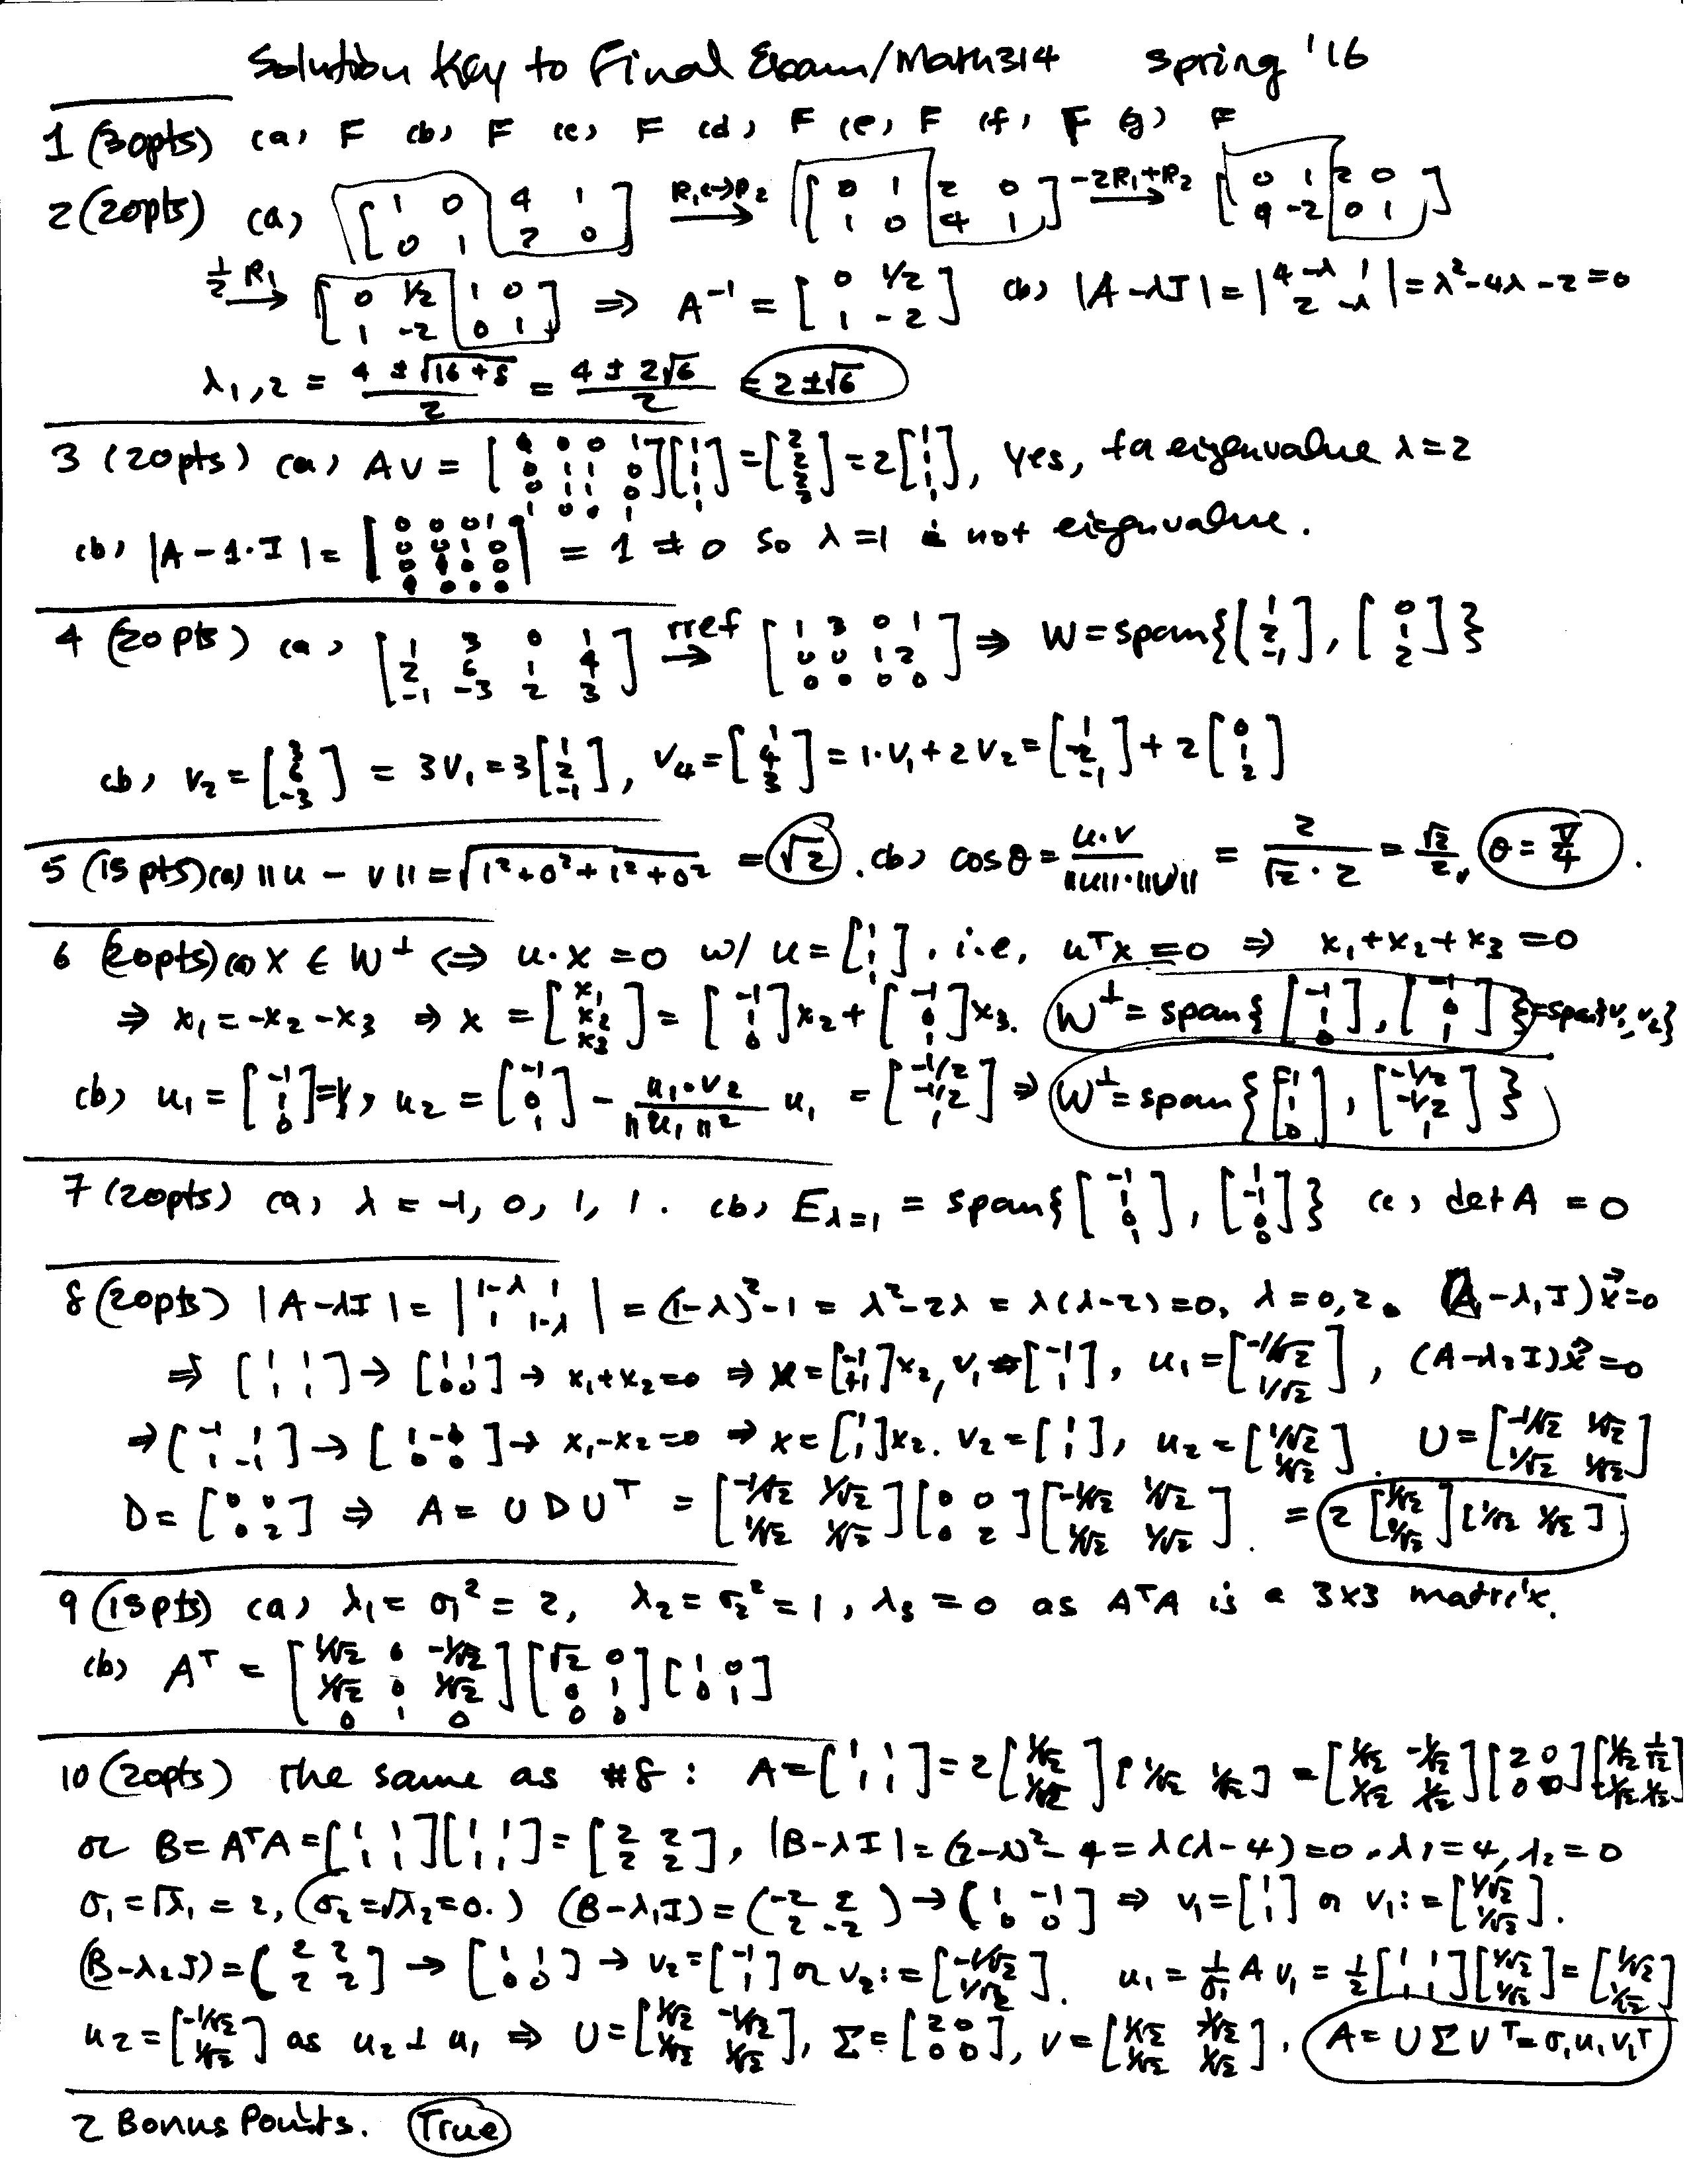 Solution Key to Final Exam/Math314 Spring '16
1 (30pts) (a) F (b) F (c) F (d) F (e) F (f) F (g) F
2 (20pts) (a) [1 0 | 4 1; 0 1 | 2 0] R1↔R2 → [0 1 | 2 0; 1 0 | 4 1] -2R1+R2 → [0 1 | 2 0; 1 -2 | 0 1]
½R1 → [0 1/2 | 1 0; 1 -2 | 0 1] ⇒ A⁻¹ = [0 1/2; 1 -2] (b) |A-λI| = |4-λ 1; 2 -λ| = λ²-4λ-2=0
λ1,2 = (4 ± √(16+8))/2 = (4 ± 2√6)/2 = 2±√6
3 (20pts) (a) AV = [1 0 0 1; 0 1 1 0; 0 1 1 0; 1 0 0 1][1; 1; 1; 1] = [2; 2; 2; 2] = 2[1; 1; 1; 1], Yes, to eigenvalue λ=2
(b) |A-1·I| = |0 0 0 1; 0 0 1 0; 0 1 0 0; 1 0 0 0| = 1 ≠ 0 so λ=1 is not eigenvalue.
4 (20pts) (a) [1 3 0 1; 2 6 1 4; -1 -3 2 3] rref → [1 3 0 1; 0 0 1 2; 0 0 0 0] ⇒ W = span{[1; 2; -1], [0; 1; 2]}
(b) V2 = [3; 6; -3] = 3V1 = 3[1; 2; -1], V4 = [1; 4; 3] = 1·V1 + 2V2 = [1; 2; -1] + 2[0; 1; 2]
5 (15pts) (a) ||u - v|| = √(1²+0²+1²+0²) = √2. (b) cosθ = u·v/(||u||·||v||) = 2/(√2·2) = √2/2, θ = π/4.
6 (20pts) (a) X ∈ W⊥ ⇔ u·x = 0 w/ u = [1; 1; 1], i.e, uᵀx = 0 ⇒ x1+x2+x3 = 0
⇒ x1 = -x2-x3 ⇒ x = [x1; x2; x3] = [-1; 1; 0]x2 + [-1; 0; 1]x3. W⊥ = span{[-1; 1; 0], [-1; 0; 1]} = span{v1, v2}
(b) u1 = [-1; 1; 0] = v1, u2 = [-1; 0; 1] - (u1·v2/||u1||²) u1 = [-1/2; -1/2; 1] ⇒ W⊥ = span{[-1; 1; 0], [-1/2; -1/2; 1]}
7 (20pts) (a) λ = -1, 0, 1, 1. (b) Eλ=1 = span{[-1; 1; 0; 1], [1; -1; 1; 0]} (c) det A = 0
8 (20pts) |A-λI| = |1-λ 1; 1 1-λ| = (1-λ)²-1 = λ²-2λ = λ(λ-2) = 0, λ = 0, 2. (A-λ1I)x⃗ = 0
⇒ [1 1; 1 1] → [1 1; 0 0] → x1+x2=0 ⇒ x = [-1; +1]x2, v1 = [-1; 1], u1 = [-1/√2; 1/√2], (A-λ2I)x⃗ = 0
⇒ [-1 1; 1 -1] → [1 -1; 0 0] → x1-x2=0 ⇒ x = [1; 1]x2. v2 = [1; 1], u2 = [1/√2; 1/√2]. U = [-1/√2 1/√2; 1/√2 1/√2]
D = [0 0; 0 2] ⇒ A = U D Uᵀ = [-1/√2 1/√2; 1/√2 1/√2][0 0; 0 2][-1/√2 1/√2; 1/√2 1/√2]. = 2[1/√2; 1/√2][1/√2 1/√2].
9 (15pts) (a) λ1 = σ1² = 2, λ2 = σ2² = 1, λ3 = 0 as AᵀA is a 3x3 matrix.
(b) Aᵀ = [1/√2 0 -1/√2; 1/√2 0 1/√2; 0 1 0][√2 0; 0 1; 0 0][1 0; 0 1]
10 (20pts) The same as #8: A = [1 1; 1 1] = 2[1/√2; 1/√2][1/√2 1/√2] = [1/√2 -1/√2; 1/√2 1/√2][2 0; 0 0][1/√2 1/√2; -1/√2 1/√2]
or B = AᵀA = [1 1; 1 1][1 1; 1 1] = [2 2; 2 2], |B-λI| = (2-λ)²-4 = λ(λ-4) = 0. λ1 = 4, λ2 = 0
σ1 = √λ1 = 2, (σ2 = √λ2 = 0.) (B-λ1I) = (-2 2; 2 -2) → [1 -1; 0 0] ⇒ v1 = [1; 1] or v1 := [1/√2; 1/√2].
(B-λ2I) = [2 2; 2 2] → [1 1; 0 0] → v2 = [-1; 1] or v2 := [-1/√2; 1/√2]. u1 = 1/σ1 A v1 = ½[1 1; 1 1][1/√2; 1/√2] = [1/√2; 1/√2]
u2 = [-1/√2; 1/√2] as u2 ⊥ u1 ⇒ U = [1/√2 -1/√2; 1/√2 1/√2], Σ = [2 0; 0 0], V = [1/√2 -1/√2; 1/√2 1/√2]. A = U Σ Vᵀ = σ1u1v1ᵀ
2 Bonus Points. True